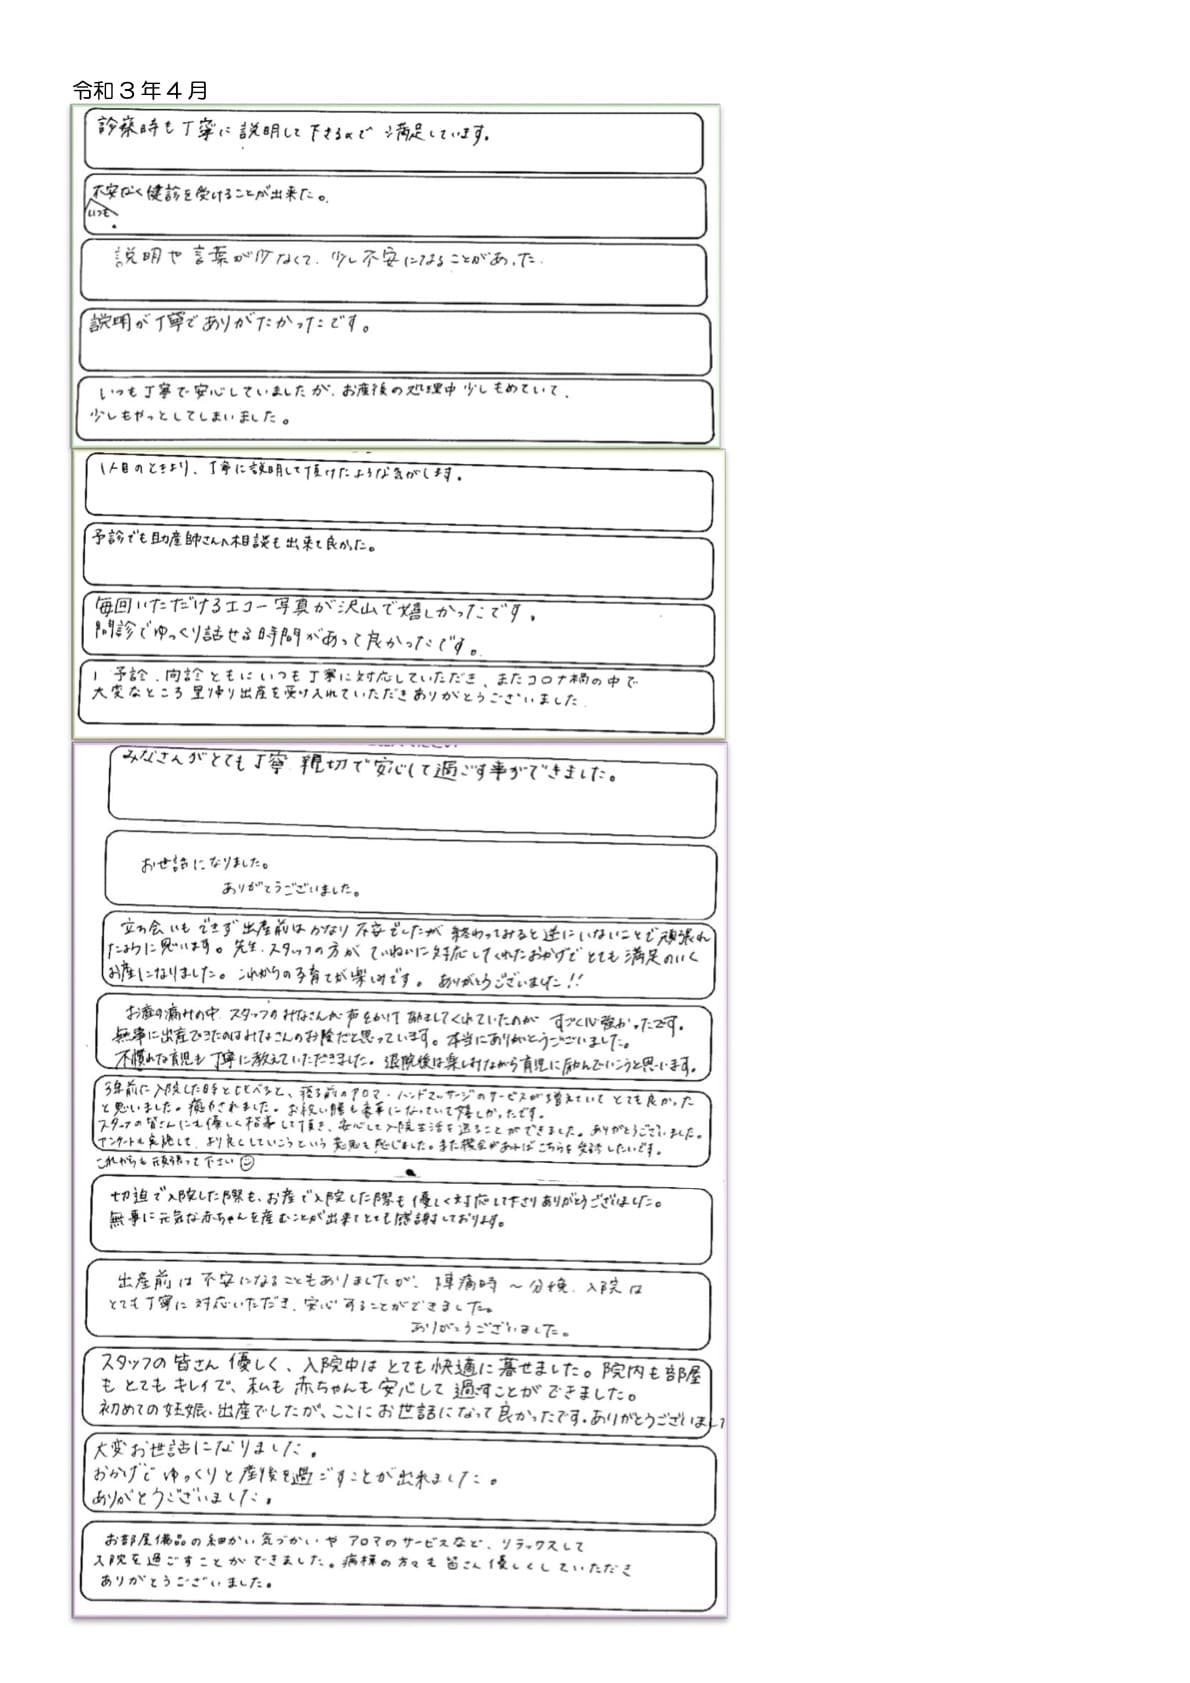 令和３年４月
診察時も丁寧に説明して下さるので満足しています。
不安なく健診を受けることが出来た。
いつも
説明や言葉が少なくて、少し不安になることがあった。
説明が丁寧でありがたかったです。
いつも丁寧で安心していましたが、お産後の処理中少しもめていて、
少しもやっとしてしまいました。
1人目のときより、丁寧に説明して頂けたような気がします。
予診でも助産師さんへ相談も出来て良かった。
毎回いただけるエコー写真が沢山で嬉しかったです。
問診でゆっくり話せる時間があって良かったです。
予診、問診ともにいつも丁寧に対応していただき、またコロナ禍の中で
大変なところ里帰り出産を受け入れていただきありがとうございました。
みなさんがとても丁寧、親切で安心して過ごす事ができました。
お世話になりました。
ありがとうございました。
立ち会いもできず出産前はかなり不安でしたが終わってみると逆にいないことで頑張れ
たように思います。先生、スタッフの方がていねいに対応してくれたおかげでとても満足のいく
お産になりました。これからの子育てが楽しみです。ありがとうございました!!
お産の痛みの中、スタッフのみなさんが声をかけて励ましてくれていたのがすごく心強かったです。
無事に出産できたのはみなさんのお陰だと思っています。本当にありがとうございました。
不慣れな育児も丁寧に教えていただきました。退院後は楽しみながら育児に励んでいこうと思います。
3年前に入院した時とくらべると、寝る前のアロマ・ハンドマッサージのサービスが増えていてとても良かった
と思いました。癒やされました。お祝い膳も豪華になっていて嬉しかったです。
スタッフの皆さんにも優しく指導して頂き、安心して入院生活を送ることができました。ありがとうございました。
アンケートも実施して、より良くしていこうという意思も感じました。また機会があればこちらを受診したいです。
これからも頑張って下さい☺
切迫で入院した際も、お産で入院した際も優しく対応して下さりありがとうございました。
無事に元気な赤ちゃんを産むことが出来てとても感謝しております。
出産前は不安になることもありましたが、陣痛時～分娩、入院は
とても丁寧に対応いただき、安心することができました。
ありがとうございました。
スタッフの皆さん優しく、入院中はとても快適に暮せました。院内も部屋
もとてもキレイで、私も赤ちゃんも安心して過すことができました。
初めての妊娠、出産でしたが、ここにお世話になって良かったです。ありがとうございまし
大変お世話になりました。
おかげでゆっくりと産後を過ごすことが出来ました。
ありがとうございました。
お部屋備品の細かい気づかいやアロマのサービスなど、リラックスして
入院を過ごすことができました。病棟の方々も皆さん優しくしていただき
ありがとうございました。